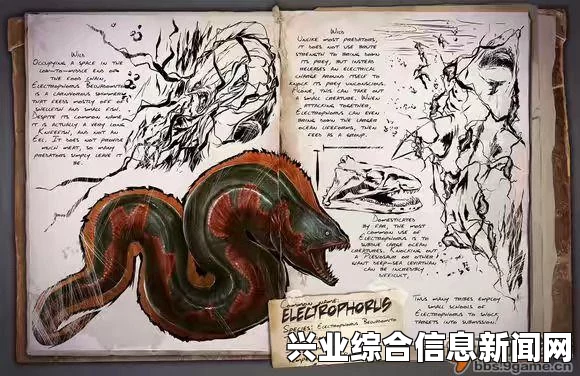 Wild
Occupying a space in the
low-to-middle end of
the food chain,
Electrophorus Beluadomito
is a carnivorous swimmer
that feeds mostly off of
shellfish and small fish.
Despite its common name,
it is actually a very long
Knifefish, and not an
Eel. It does not provide
much meat, so many
predators simply leave it
be.
Wild
Unlike most predators,
it does not use brute
strength to bring down
its prey, but instead
releases an electrical
charge around itself to
knock its prey unconscious.
Alone, this can take out
a small creature. When
attacking together,
Electrophorus can even
bring down the larger
ocean lifeforms, then
feed as a group.
Domesticated
By far, the most
common use of
Electrophorus is to
subdue large ocean
creatures. Knocking out
a Plesiosaur or other
giant deep-sea leviathan
can be incredibly
difficult,
thus many tribes employ
small schools of
Electrophorus to shock
targets into submission.
Common Name:
Electrophorus
Species: Electrophorus Beluadomito
兴业综合信息新闻网
bbs.9game.cn